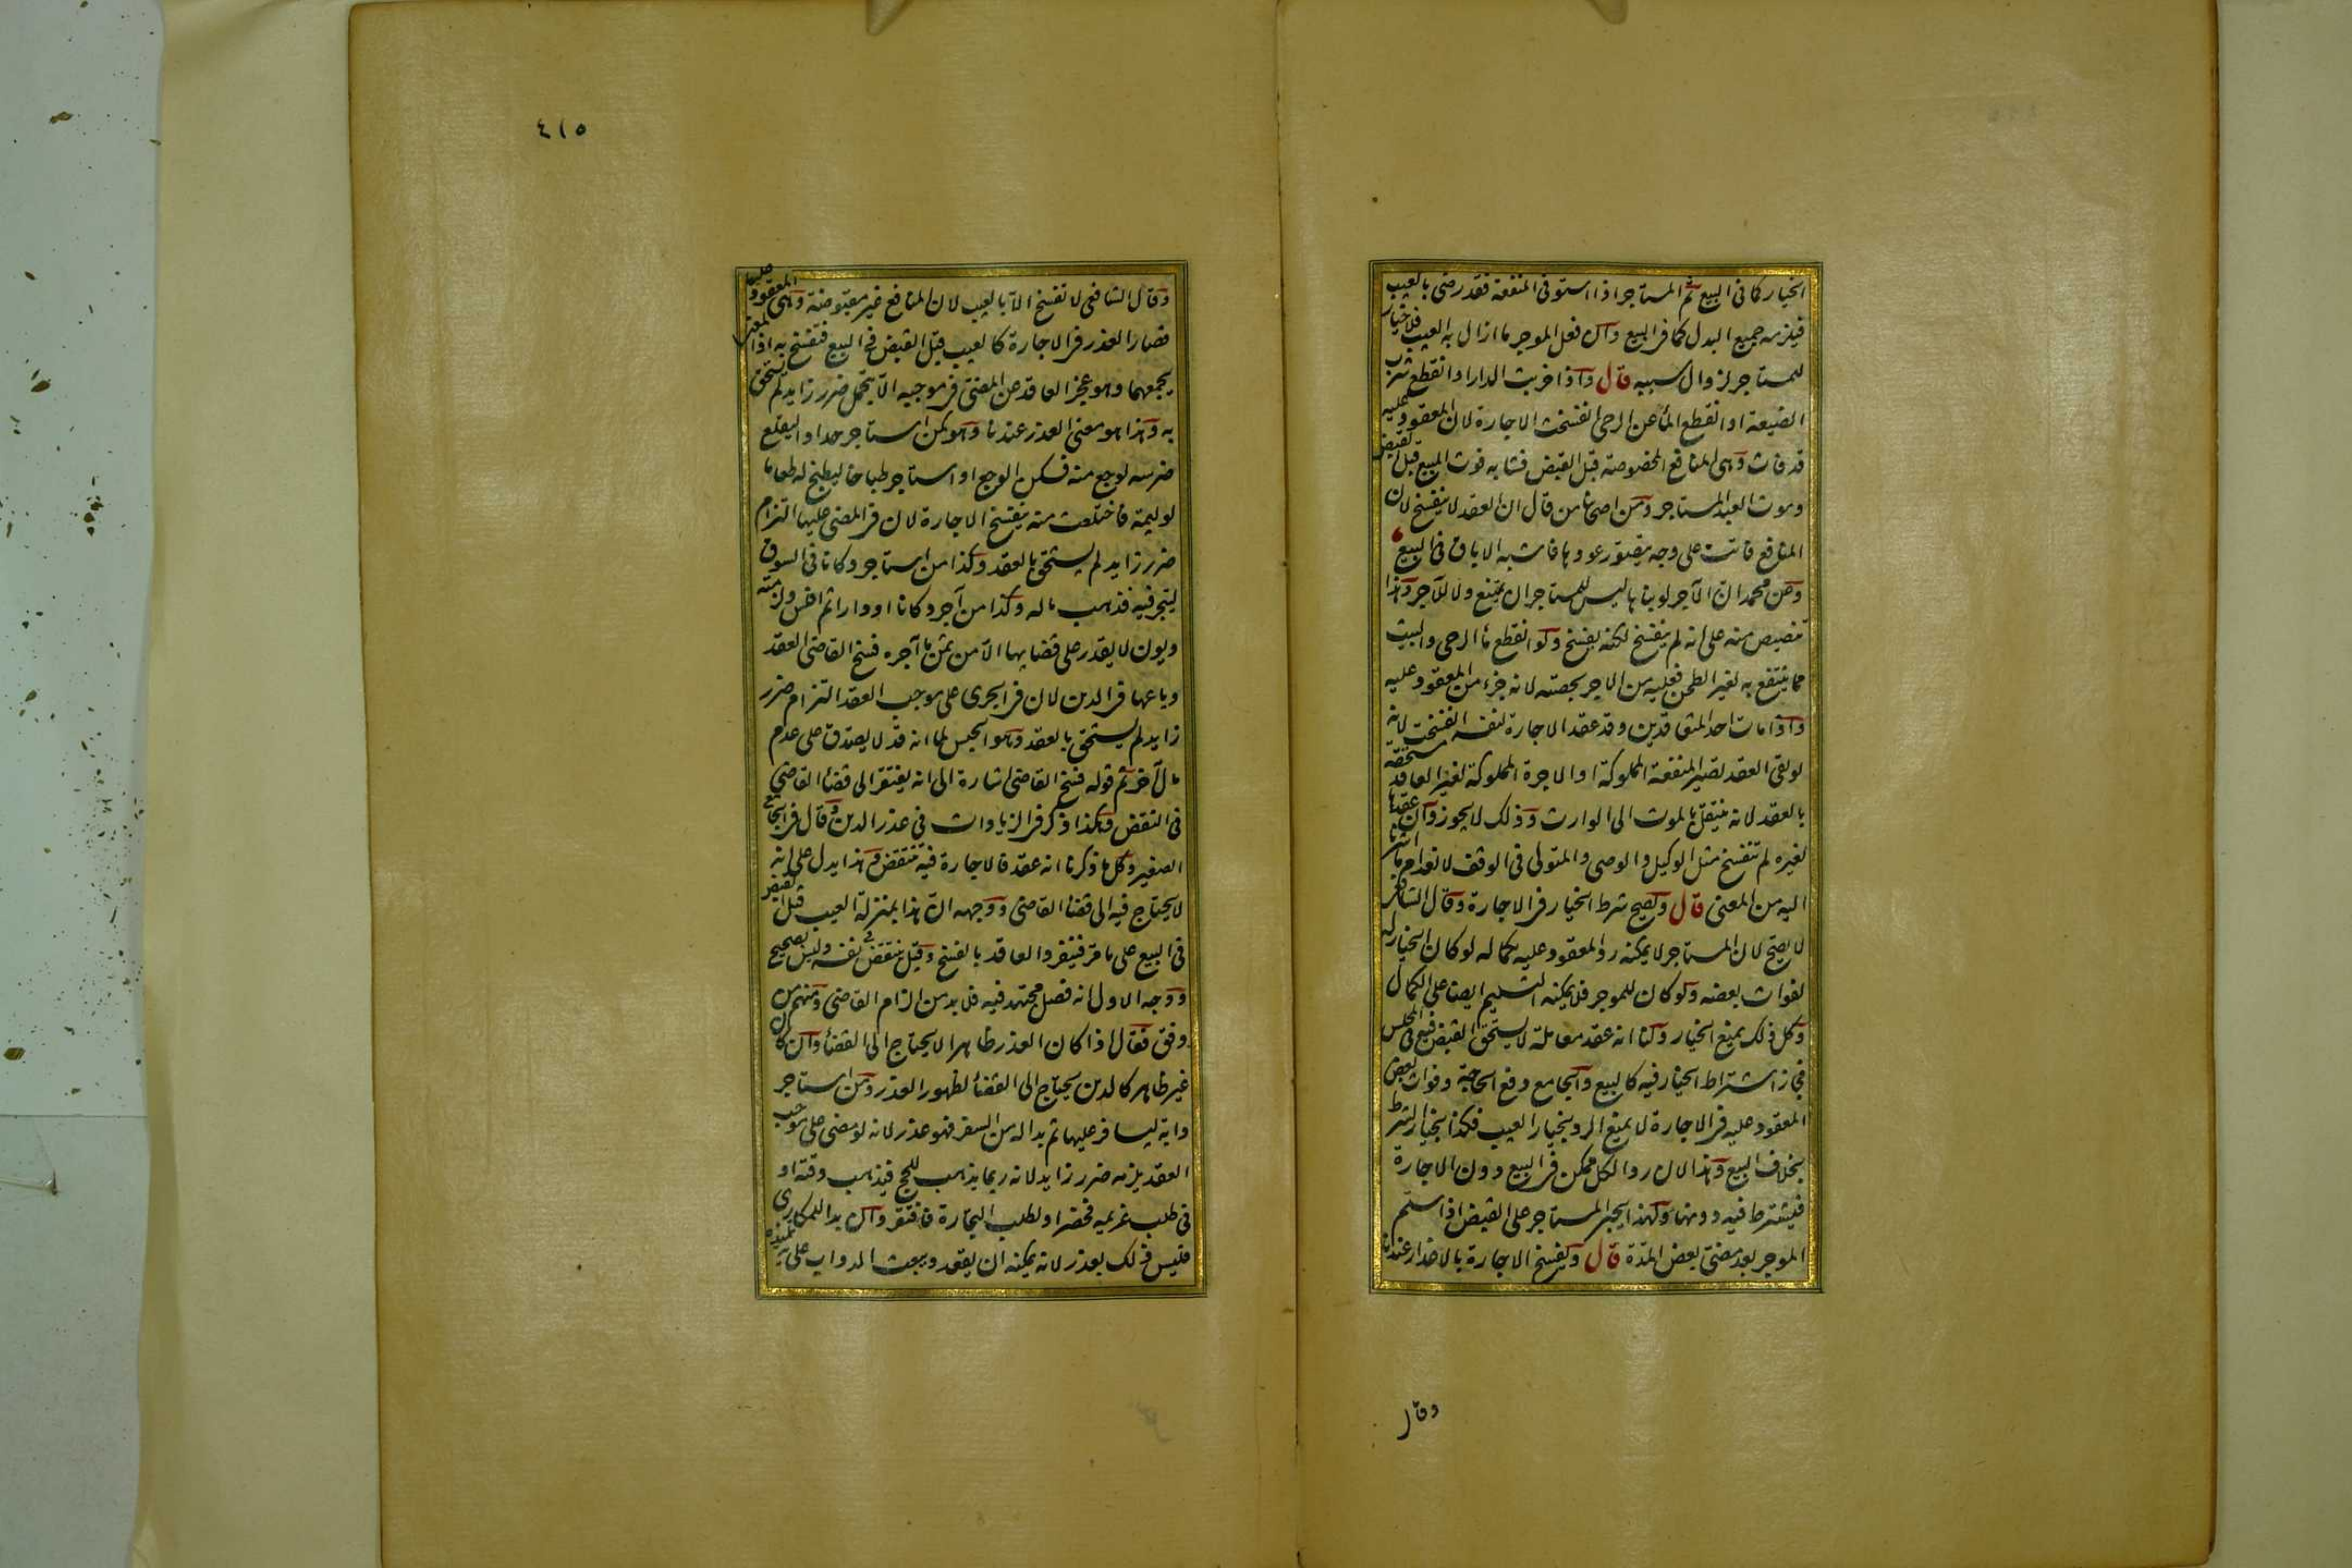 الخيار كما فى البيع ثم المستاجر اذا استوفى المنفعة فقد رضى بالعيب
فيلزمه جميع البدل كما فى البيع وان فعل الموجر ما ازال به العيب فلا خيار
للمستاجر لزوال سببه قال واذا خربت الدار او انقطع شرب
الضيعة او انقطع الماء عن الرحى انفسخت الاجارة لان المعقود عليه
قد فات وهى المنافع المخصوصة قبل القبض فشابه فوت المبيع قبل القبض
وموت العبد المستاجر ومن اصحابنا من قال ان العقد لا ينفسخ لان
المنافع فاتت على وجه يتصور عودها فاشبه الاباق فى البيع
وعن محمد ان الآجر لو بناها ليس للمستاجر ان يمتنع ولا للآجر وهذا
تنصيص منه على انه لم ينفسخ لكنه يفسخ ولو انقطع ماء الرحى والبيت
مما ينتفع به لغير الطحن فعليه من الاجر بحصته لانه جزء من المعقود عليه
واذا مات احد المتعاقدين وقد عقد الاجارة لنفسه انفسخت لانه
لو بقى العقد تصير المنفعة المملوكة او الاجرة المملوكة لغير العاقد مستحقة
بالعقد لانه ينتقل بالموت الى الوارث وذلك لا يجوز وان عقدها
لغيره لم تنفسخ مثل الوكيل والوصى والمتولى فى الوقف لانعدام ما اشرنا
اليه من المعنى قال ويصح شرط الخيار فى الاجارة وقال الشافعى
لا يصح لان المستاجر لا يمكنه رد المعقود عليه بكماله لو كان الخيار له
لفوات بعضه ولو كان للموجر فلا يمكنه التسليم ايضا على الكمال
وكل ذلك يمنع الخيار ولنا انه عقد معاملة لا يستحق القبض فيه فى المجلس
فجاز اشتراط الخيار فيه كالبيع والجامع دفع الحاجة وفوات بعض
المعقود عليه فى الاجارة لا يمنع الرد بخيار العيب فكذا بخيار الشرط
بخلاف البيع وهذا لان رد الكل ممكن فى البيع دون الاجارة
فيشترط فيه دونها ولهذا يجبر المستاجر على القبض اذا سلم
الموجر بعد مضى بعض المدة قال وتفسخ الاجارة بالاعذار عندنا
وقال
٤١٥
وقال الشافعى لا تفسخ الا بالعيب لان المنافع غير مقبوضة وهى المعقود عليها
فصار العذر فى الاجارة كالعيب قبل القبض فى البيع فتفسخ به اذ المعنى
يجمعهما وهو عجز العاقد عن المضى فى موجبه الا بتحمل ضرر زايد لم يستحق
به وهذا هو معنى العذر عندنا وهو كمن استاجر حدادا ليقلع
ضرسه لوجع منه فسكن الوجع او استاجر طباخا ليطبخ له طعاما
لوليمة فاختلعت منه يفسخ الاجارة لان فى المضى عليها التزام
ضرر زايد لم يستحق بالعقد وكذا من استاجر دكانا فى السوق
ليتجر فيه فذهب ماله وكذا من آجر دكانا او دارا ثم افلس ولزمته
ديون لا يقدر على قضايها الا من ثمن ما آجره فسخ القاضى العقد
وباعها فى الدين لان فى الجرى على موجب العقد التزام ضرر
زايد لم يستحق بالعقد وهو الحبس لما انه قد لا يصدق على عدم
مال آخر ثم قوله فسخ القاضى اشارة الى انه يفتقر الى قضاء القاضى
فى النقض وهكذا ذكر فى الزيادات فى عذر الدين وقال فى الجامع
الصغير وكل ما ذكرنا انه عقد فالاجارة فيه تنتقض وهذا يدل على انه
لا يحتاج فيه الى قضاء القاضى ووجهه ان هذا بمنزلة العيب قبل القبض
فى البيع على ما مر فينفرد العاقد بالفسخ وقيل ينتقض فى نفسه وليس بصحيح
ووجه الاول انه فصل مجتهد فيه فلا بد من الزام القاضى ومنهم من
وفق فقال اذا كان العذر ظاهرا لا يحتاج الى القضاء وان كان
غير ظاهر كالدين يحتاج الى القضاء لظهور العذر ومن استاجر
دابة ليسافر عليها ثم بدا له من السفر فهو عذر لانه لو مضى على موجب
العقد يلزمه ضرر زايد لانه ربما يذهب للحج فيذهب وقته او
فى طلب غريمه فحضر او لطلب التجارة فافتقر وان بدا للمكارى
فليس ذلك بعذر لانه يمكنه ان يقعد ويبعث الدواب على يد تلميذه